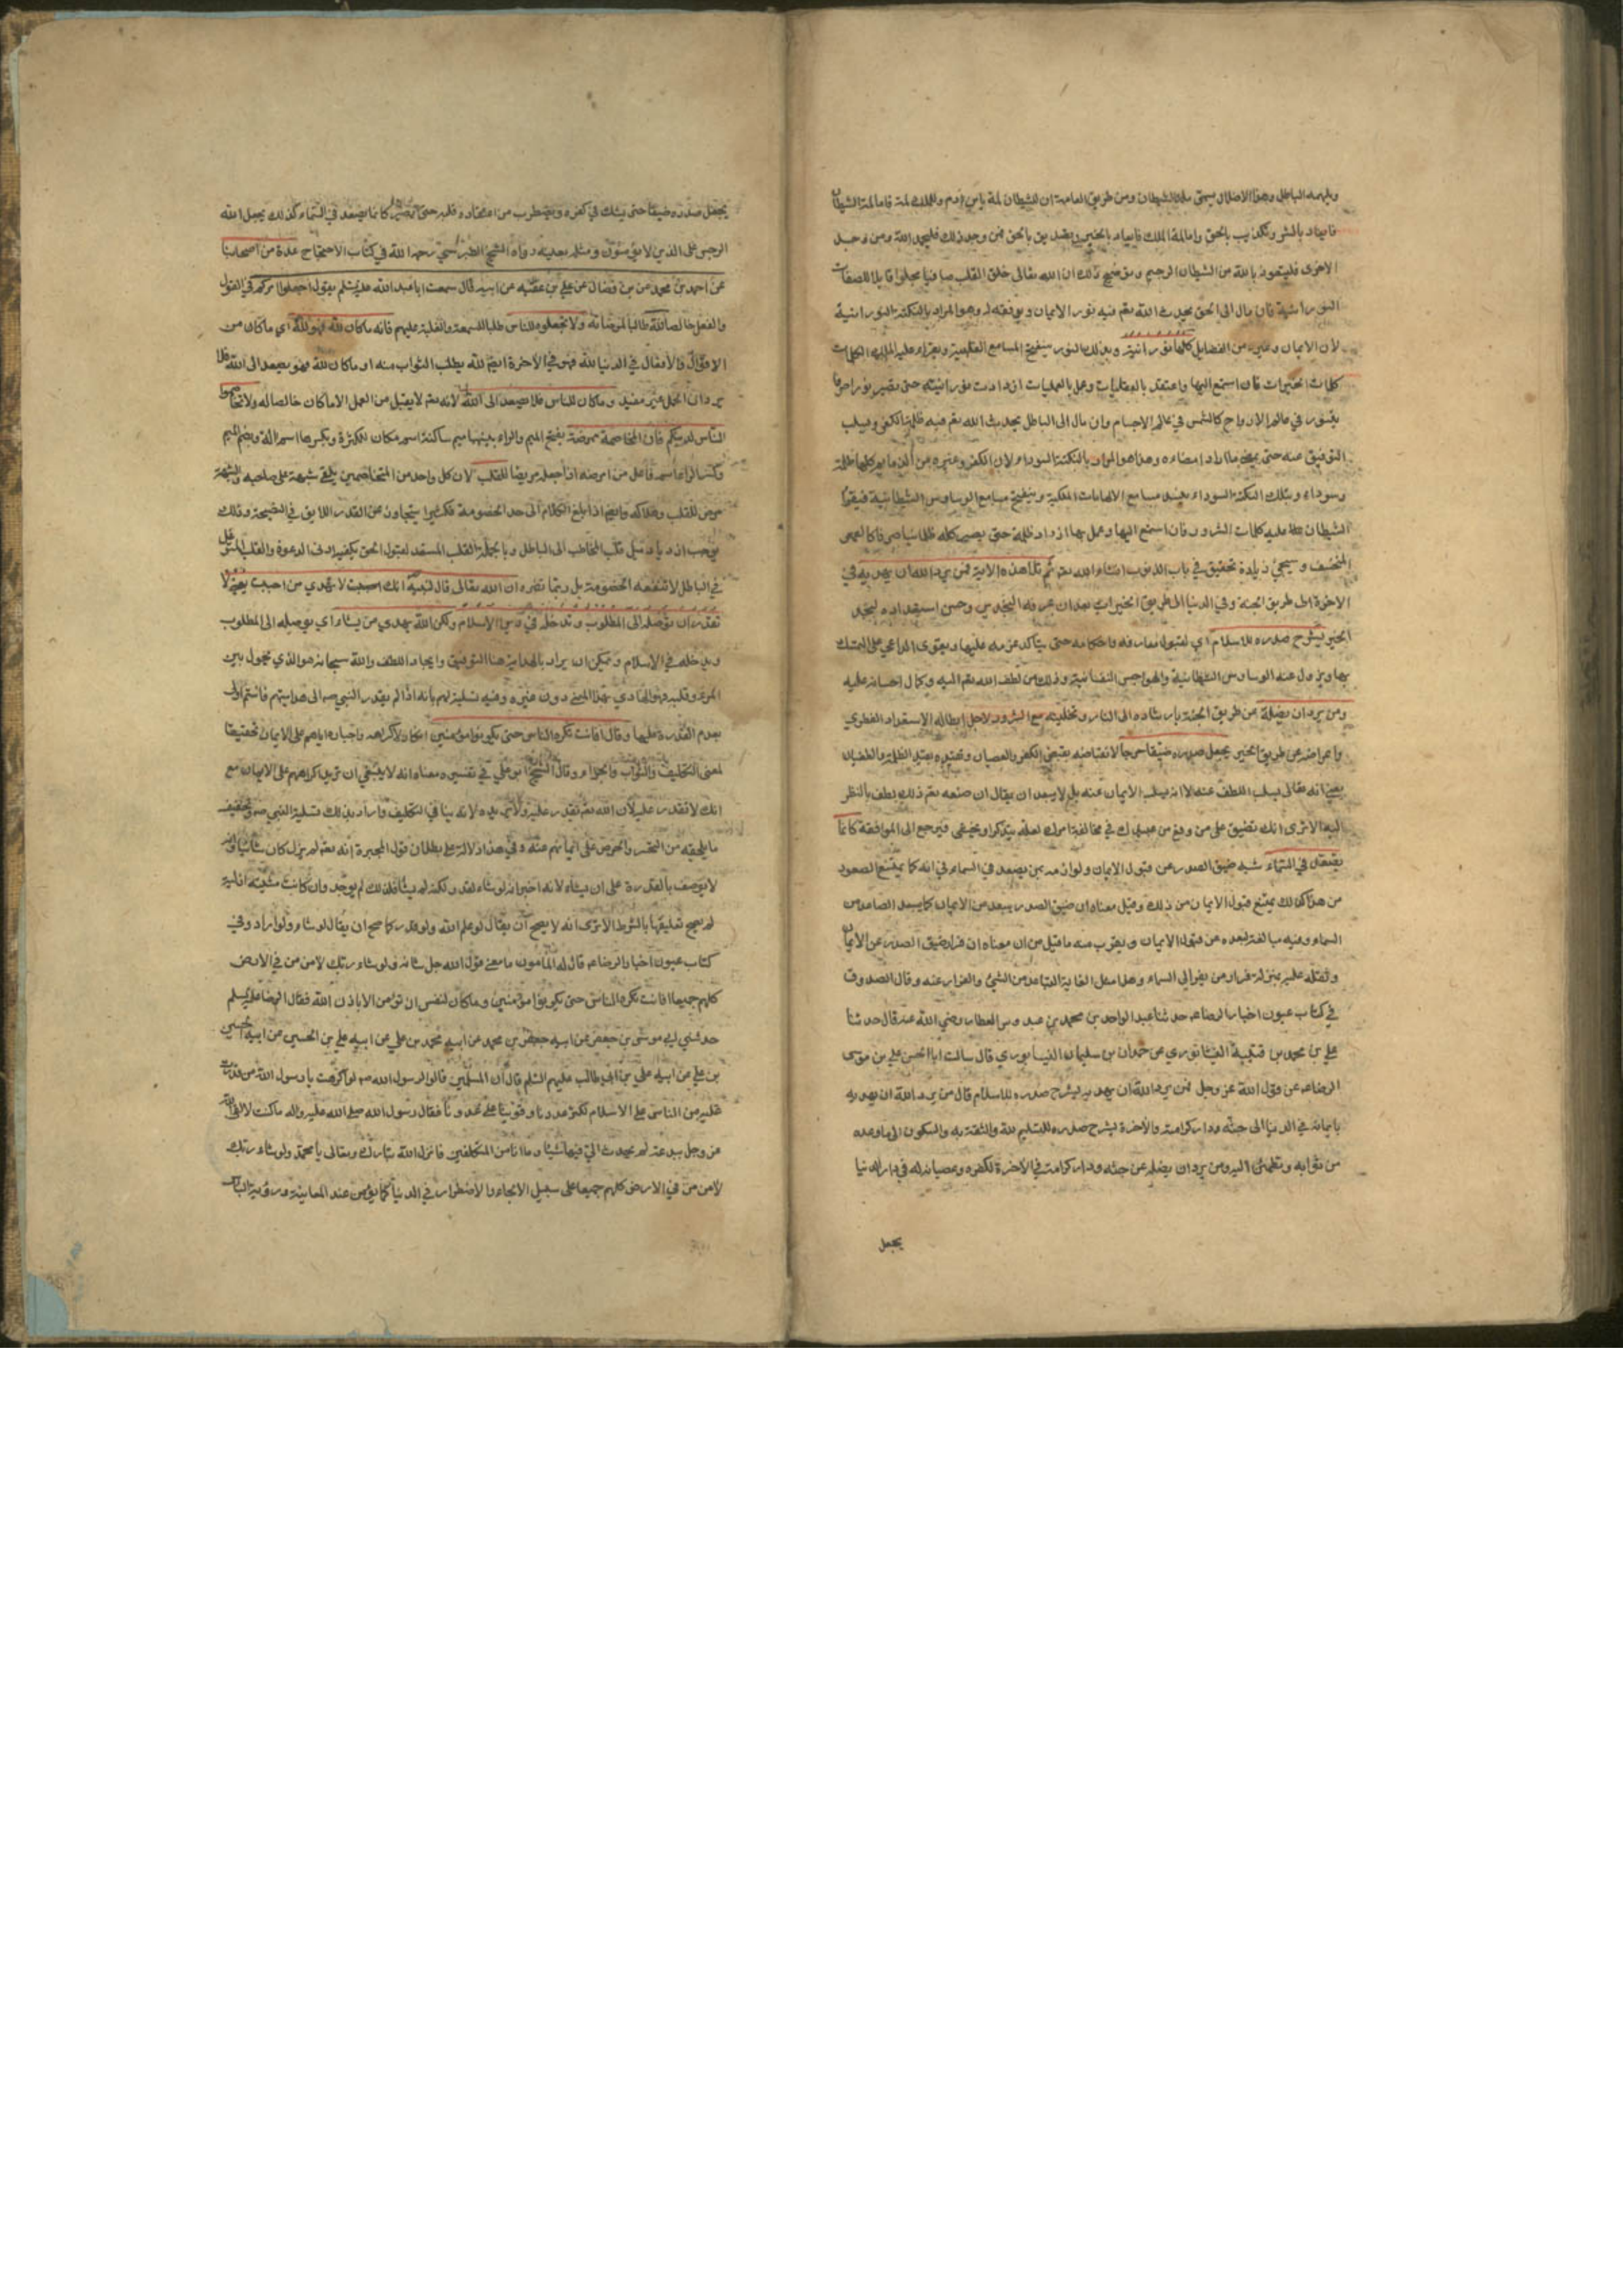 ويلهمه الباطل وهذا الاضلال يسمى لمة الشيطان ومن طريق العامة ان للشيطان لمة بابن ادم وللملك لمة فاما لمة الشيطان
فايعاد بالشر وتكذيب بالحق واما لمة الملك فايعاد بالخير وتصديق بالحق فمن وجد ذلك فليحمد الله ومن وجد
الاخرى فليتعوذ بالله من الشيطان الرجيم وتوضيح ذلك ان الله تعالى خلق القلب صافيا مجلوا قابلا للصفات
النورانية فان مال الى الحق يحدث الله تعم فيه نور الايمان ويوفقه له وهو المراد بالنكتة النورانية
لان الايمان وغيره من الفضايل كلها نورانية وبذلك النور ينفتح المسامع القلبية ويقراء عليه الملك الكلمات
كلمات الخيرات فان استمع اليها واعتقد بالعقليات وعمل بالعمليات ازدادت نورانيته حتى يصير نورا صرفا
يتنور في عالم الارواح كالشمس في عالم الاجسام وان مال الى الباطل يحدث الله تعم فيه ظلمة الكفر ويسلب
التوفيق عنه حتى يمضي ما اراد امضاءه وهذا هو المراد بالنكتة السوداء لان الكفر وغيره من الذمايم كلها ظلمة
وسوداء وبتلك النكتة السوداء يفسد مسامع الالهامات الملكية وينفتح مسامع الوساوس الشيطانية فيقرأ
الشيطان عليه كلمات الشرور فان استمع اليها وعمل بها ازداد ظلمة حتى يصير كله ظلمانيا صرفا كالقمر
المنخسف وسيجئ زيادة تحقيق في باب الذنوب انشاء الله تعم ثم تلا هذه الاية فمن يرد الله ان يهديه في
الاخرة الى طريق الجنة وفي الدنيا الى طريق الخيرات بعد ان عرفه النجدين وحسن استعداده لنجد
الخير يشرح صدره للاسلام اي لقبول معارفه واحكامه حتى يتأكد عزمه عليها ويقوى الداعي على التمسك
بها ويزول عنه الوساوس الشيطانية والهواجس النفسانية وذلك من لطف الله تعم اليه وكمال احسانه عليه
ومن يرد ان يضله عن طريق الجنة بارشاده الى النار وتخليته مع الشرور لاجل ابطاله الاستعداد الفطري
واعراضه عن طريق الخير يجعل صدره ضيقا حرجا لانقباضه بقبض الكفر والعصيان وتقيده بقيد الظلمة والطغيان
يعني انه تعالى يسلب اللطف عنه لا انه يسلب الايمان عنه بل لا يبعد ان يقال ان صنعه تعم ذلك لطف بالنظر
اليه الا ترى انك تضيق على من وقع من عبيدك في مخالفة امرك لعله يتذكر او يخشى فيرجع الى الموافقة كانما
يصعد في السماء شبه ضيق الصدر عن قبول الايمان ولوازمه بمن يصعد في السماء في انه كما يمتنع الصعود
من هذا كذلك يمتنع قبول الايمان من ذلك وقيل معناه ان ضيق الصدر يبعد من الايمان كما يبعد الصاعد من
السماء وفيه مبالغة لبعده عن قبول الايمان ويقرب منه ما قيل من ان معناه ان فرار ضيق الصدر عن الايمان
وثقله عليه بمنزلة فرار من يفر الى السماء وهذا مثل لغاية التباعد من الشئ والفرار عنه وقال الصدوق
في كتاب عيون اخبار الرضا عم حدثنا عبد الواحد بن محمد بن عبدوس العطار رضي الله عنه قال حدثنا
علي بن محمد بن قتيبة النيشابوري عن حمدان بن سليمان النيسابوري قال سالت ابا الحسن علي بن موسى
الرضا عم عن قول الله عز وجل فمن يرد الله ان يهديه يشرح صدره للاسلام قال من يرد الله ان يهديه
بايمانه في الدنيا الى جنته ودار كرامته والاخرة يشرح صدره للتسليم لله والثقة به والسكون الى ما وعده
من ثوابه ويطمئن اليه ومن يرد ان يضله عن جنته ودار كرامته في الاخرة لكفره وعصيانه له في دار الدنيا
يجعل
يجعل صدره ضيقا حتى يشك في كفره ويضطرب من اعتقاده قلبه حتى يصير كانما يصعد في السماء كذلك يجعل الله
الرجس على الذين لا يؤمنون ومثله بعينه رواه الشيخ الطبرسي رحمه الله في كتاب الاحتجاج عدة من اصحابنا
عن احمد بن محمد عن بن فضال عن علي بن عقبة عن ابيه قال سمعت ابا عبد الله عليه السلم يقول اجعلوا امركم في القول
والفعل خالصا لله طالبا لمرضاته ولا تجعلوه للناس طلبا للسمعة والغلبة عليهم فانه ما كان لله فهو لله اي ما كان من
الاقوال والافعال في الدنيا لله فهو في الاخرة ايضا لله يطلب الثواب منه او ما كان لله فهو يصعد الى الله فلا
يرد ان الحمل غير مفيد وما كان للناس فلا يصعد الى الله لانه تعم لا يقبل من العمل الا ما كان خالصا له ولا تخاصموا
الناس لدينكم فان المخاصمة ممرضة بفتح الميم والراء بينهما ميم ساكنة اسم مكان للكثرة وبكسرها اسم الة وبضم الميم
وكسر الراء اسم فاعل من امرضه اذا جعله مريضا للقلب لان كل واحد من المتخاصمين يلقي شبهة على صاحبه والشبهة
مرض للقلب وهلاكه وايضا اذا بلغ الكلام الى حد الخصومة فكثيرا يتجاوز عن القدر اللايق في النصيحة وذلك
يوجب ازدياد ميل قلب المخاطب الى الباطل وبالجملة القلب المستعد لقبول الحق يكفيه ادنى الدعوة والقلب المتوغل
في الباطل لا تنفعه الخصومة بل ربما تضره ان الله تعالى قال لنبيه انك لا تهدي من احببت يعني لا
تقدر ان توصله الى المطلوب وتدخله في دين الاسلام ولكن الله يهدي من يشاء اي يوصله الى المطلوب
ويدخله في الاسلام ويمكن ان يراد بالهداية هنا التوفيق وايجاد اللطف والله سبحانه هو الذي يحول بين
المرء وقلبه فهو الهادي بهذا المعنى دون غيره وفيه تسلية لهم بانه اذا لم يقدر النبي صم الى هدايتهم فانتم اولى
بعدم القدرة عليها وقال افانت تكره الناس حتى يكونوا مؤمنين انكار لاكراهه واجباره اياهم على الايمان تحقيقا
لمعنى التكليف والثواب والجزاء وقال الشيخ ابو علي في تفسيره معناه انه لا ينبغي ان تريد اكراههم على الايمان مع
انك لا تقدر عليه لان الله تعم يقدر عليه ولا يريده لانه ينافي التكليف واراد بذلك تسلية النبي صم وتخفيف
ما يلحقه من التحسر والحرص على ايمانهم عنه وفي هذا دلالة على بطلان قول المجبرة انه تعم لم يزل كان شائيا وانه
لا يوصف بالقدرة على ان يشاء لانه اخبر انه لو شاء لقدر لكنه لم يشأ فلذلك لم يوجد ولو كانت مشيته ازلية
لم يصح تعليقها بالشرط الا ترى انه لا يصح ان يقال لو علم الله ولو قدر كما صح ان يقال لو شاء ولو اراد وفي
كتاب عيون اخبار الرضا عم قال له المأمون ما معنى قول الله جل شانه ولو شاء ربك لامن من في الارض
كلهم جميعا افانت تكره الناس حتى يكونوا مؤمنين وما كان لنفس ان تؤمن الا باذن الله فقال الرضا عليه السلم
حدثني ابي موسى بن جعفر عن ابيه جعفر بن محمد عن ابيه محمد بن علي عن ابيه علي بن الحسين عن ابيه الحسين
بن علي عن ابيه علي بن ابي طالب عليهم السلم قال ان المسلمين قالوا لرسول الله صم لو اكرهت يا رسول الله من قدرت
عليه من الناس على الاسلام لكثر عددنا وقوينا على عدونا فقال رسول الله صلى الله عليه واله ما كنت لالقى الله
عز وجل ببدعة لم يحدث الي فيها شيئا وما انا من المتكلفين فانزل الله تبارك وتعالى يا محمد ولو شاء ربك
لامن من في الارض كلهم جميعا على سبيل الالجاء والاضطرار في الدنيا كما يؤمن عند المعاينة ورؤية الباس